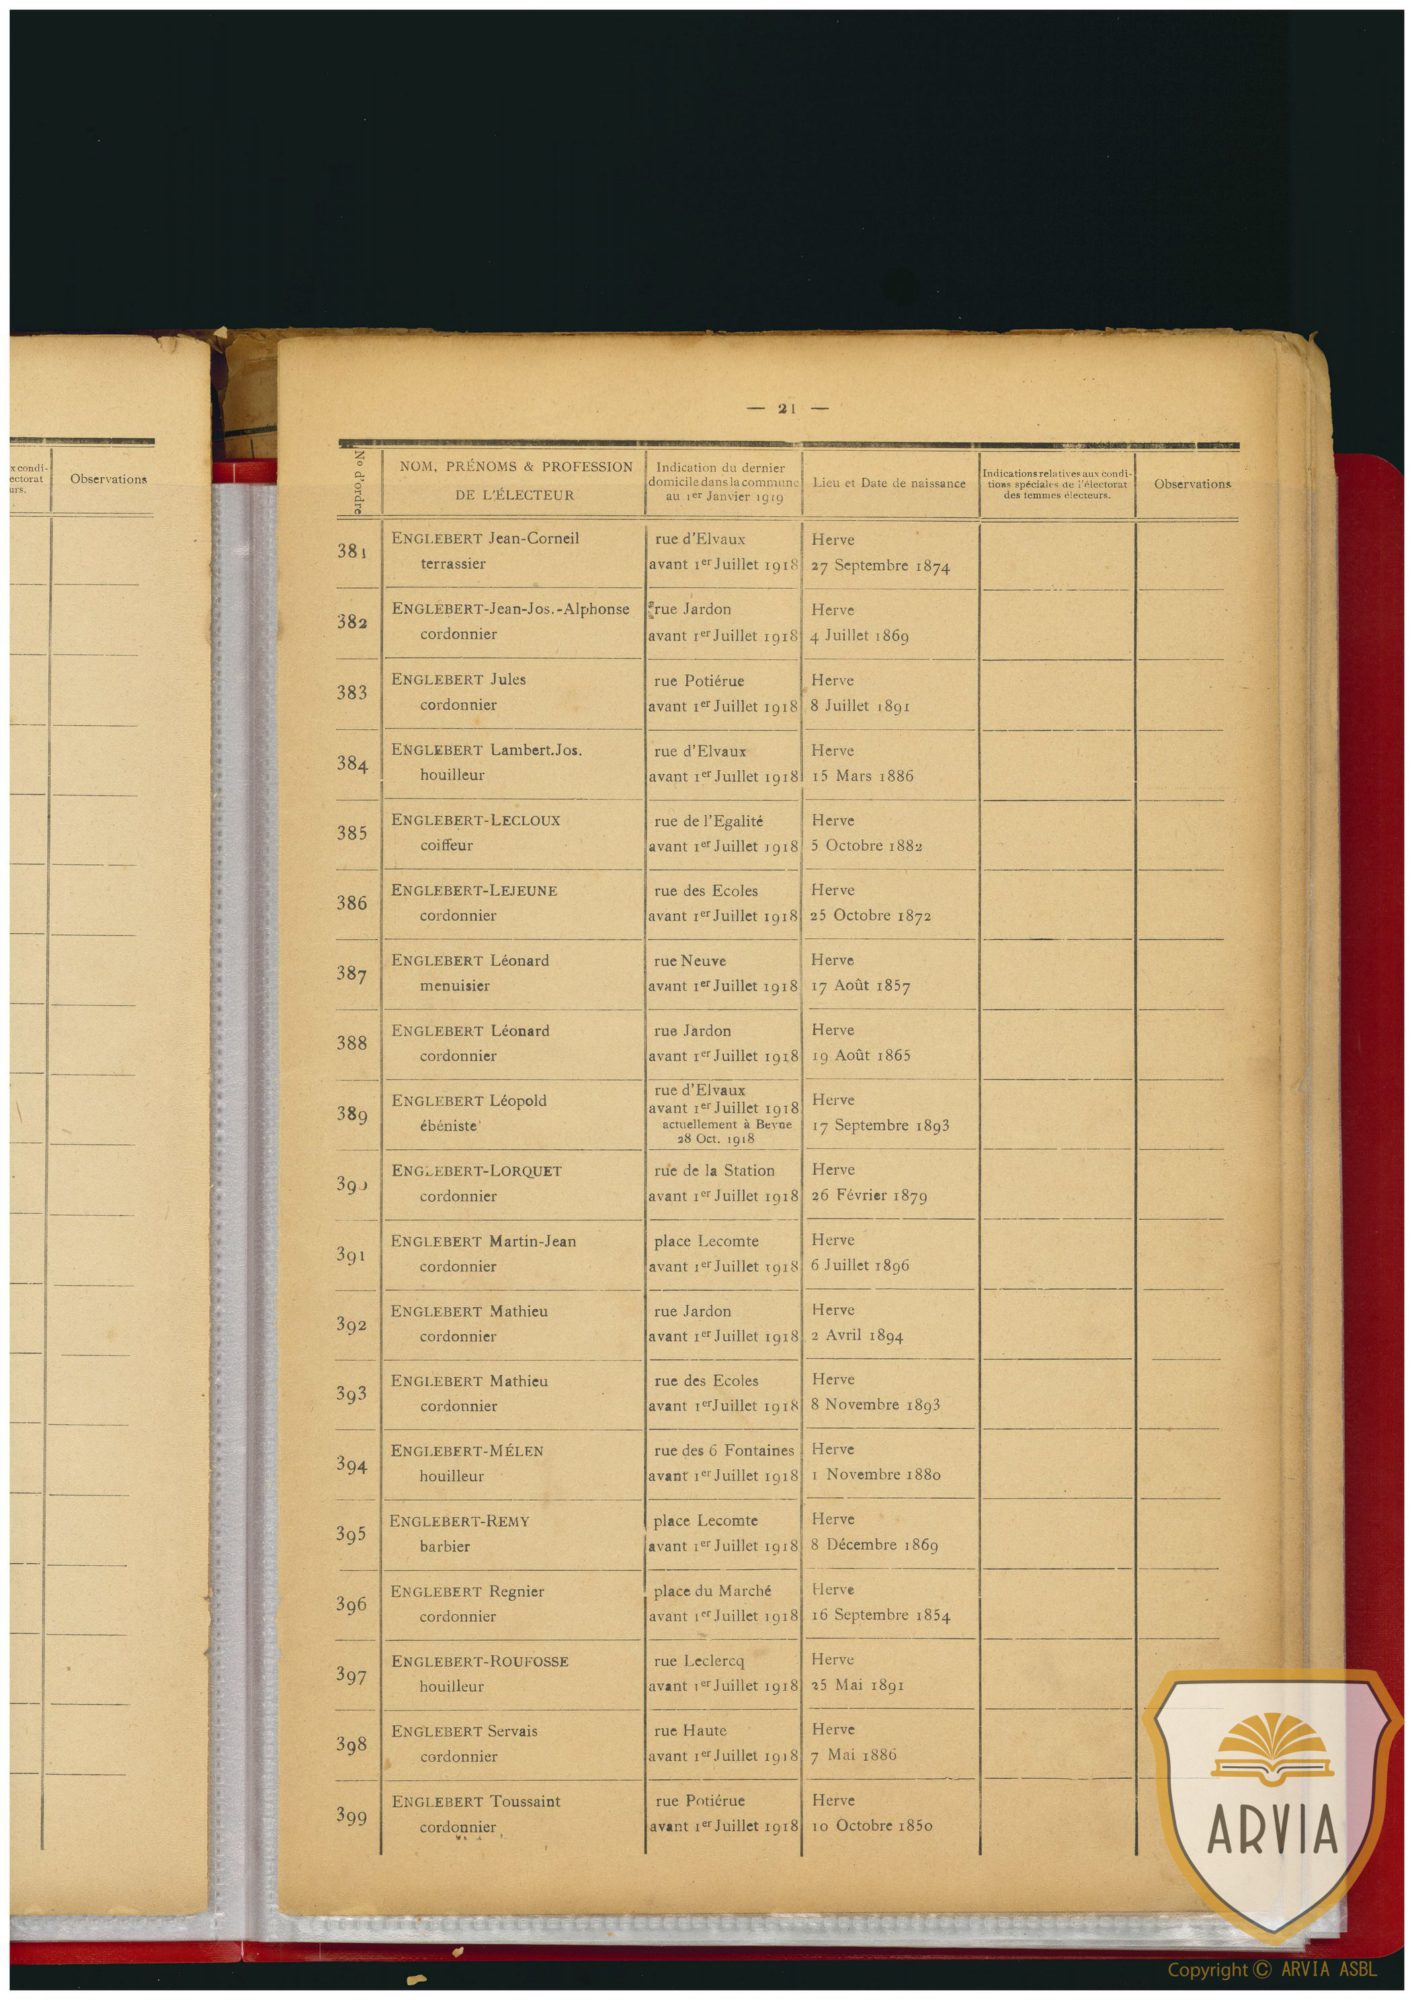 x condi-
ectorat
urs.
Observations
— 21 —
No d'ordre
NOM, PRÉNOMS & PROFESSION
DE L'ÉLECTEUR
Indication du dernier
domicile dans la commune
au 1er Janvier 1919
Lieu et Date de naissance
Indications relatives aux condi-
tions spéciales de l'électorat
des femmes électeurs.
Observations
381
ENGLEBERT Jean-Corneil
terrassier
rue d'Elvaux
avant 1er Juillet 1918
Herve
27 Septembre 1874
382
ENGLEBERT-Jean-Jos.-Alphonse
cordonnier
rue Jardon
avant 1er Juillet 1918
Herve
4 Juillet 1869
383
ENGLEBERT Jules
cordonnier
rue Potiérue
avant 1er Juillet 1918
Herve
8 Juillet 1891
384
ENGLEBERT Lambert.Jos.
houilleur
rue d'Elvaux
avant 1er Juillet 1918
Herve
15 Mars 1886
385
ENGLEBERT-LECLOUX
coiffeur
rue de l'Egalité
avant 1er Juillet 1918
Herve
5 Octobre 1882
386
ENGLEBERT-LEJEUNE
cordonnier
rue des Ecoles
avant 1er Juillet 1918
Herve
25 Octobre 1872
387
ENGLEBERT Léonard
menuisier
rue Neuve
avant 1er Juillet 1918
Herve
17 Août 1857
388
ENGLEBERT Léonard
cordonnier
rue Jardon
avant 1er Juillet 1918
Herve
19 Août 1865
389
ENGLEBERT Léopold
ébéniste
rue d'Elvaux
avant 1er Juillet 1918
actuellement à Beyne
28 Oct. 1918
Herve
17 Septembre 1893
390
ENGLEBERT-LORQUET
cordonnier
rue de la Station
avant 1er Juillet 1918
Herve
26 Février 1879
391
ENGLEBERT Martin-Jean
cordonnier
place Lecomte
avant 1er Juillet 1918
Herve
6 Juillet 1896
392
ENGLEBERT Mathieu
cordonnier
rue Jardon
avant 1er Juillet 1918
Herve
2 Avril 1894
393
ENGLEBERT Mathieu
cordonnier
rue des Ecoles
avant 1er Juillet 1918
Herve
8 Novembre 1893
394
ENGLEBERT-MÉLEN
houilleur
rue des 6 Fontaines
avant 1er Juillet 1918
Herve
1 Novembre 1880
395
ENGLEBERT-REMY
barbier
place Lecomte
avant 1er Juillet 1918
Herve
8 Décembre 1869
396
ENGLEBERT Regnier
cordonnier
place du Marché
avant 1er Juillet 1918
Herve
16 Septembre 1854
397
ENGLEBERT-ROUFOSSE
houilleur
rue Leclercq
avant 1er Juillet 1918
Herve
25 Mai 1891
398
ENGLEBERT Servais
cordonnier
rue Haute
avant 1er Juillet 1918
Herve
7 Mai 1886
399
ENGLEBERT Toussaint
cordonnier
rue Potiérue
avant 1er Juillet 1918
Herve
10 Octobre 1850
ARVIA
Copyright © ARVIA ASBL